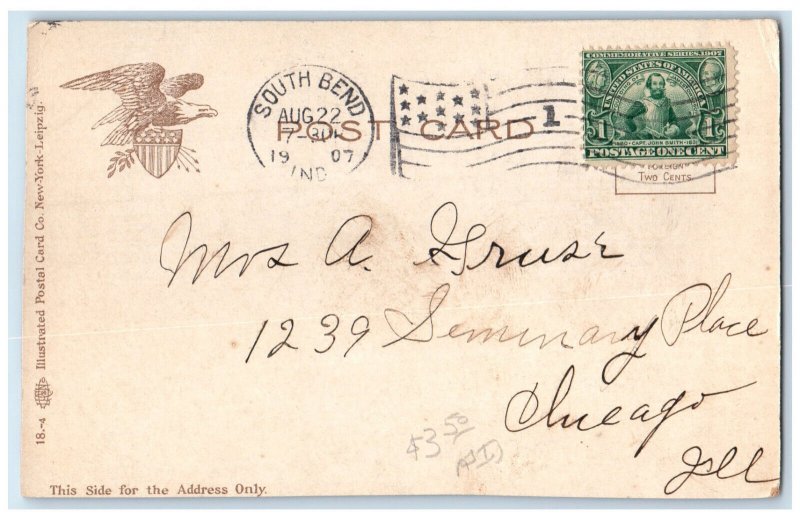 SOUTH BEND
AUG 22
1907
IND
1
POST CARD
COMMEMORATIVE SERIES 1907
UNITED STATES OF AMERICA
1 1
CAPT. JOHN SMITH
POSTAGE ONE CENT
FOREIGN
TWO CENTS
Illustrated Postal Card Co. New-York-Leipzig.
18.-4
Mrs A. Gruse
1239 Seminary Place
Chicago
Ill
$3.50
This Side for the Address Only.